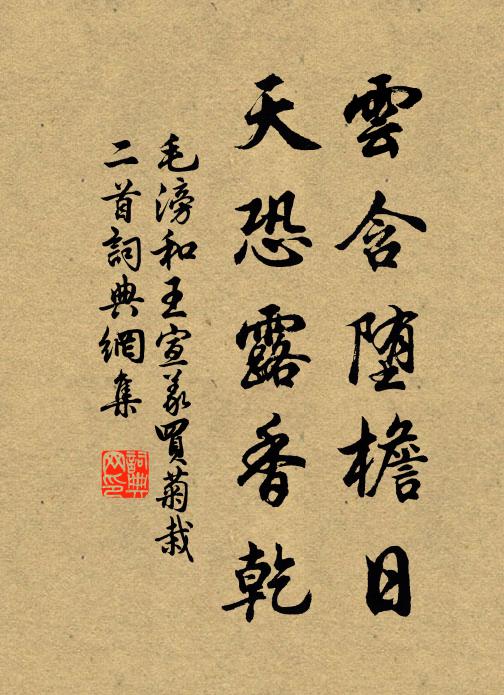 雲含墮檐日
天恐露香乾
毛滂和王宣義買菊栽
二首詞典網集
詞典
网印